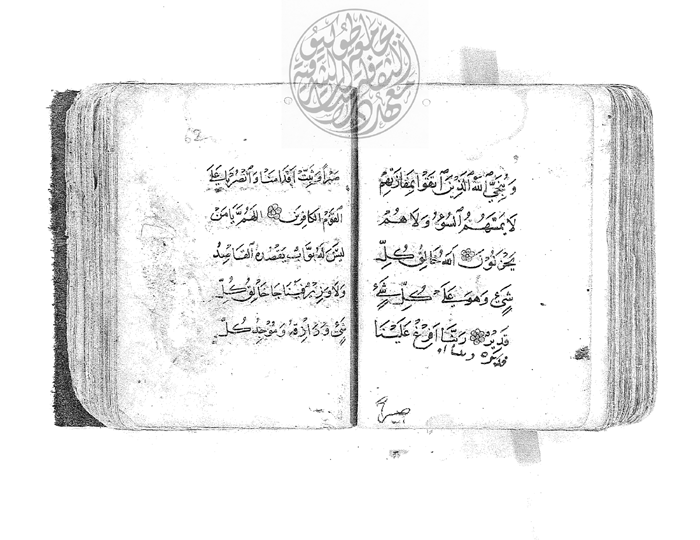 وينجي الله الذين اتقوا بمفازتهم
لا يمسهم السوء ولا هم
يحزنون الله خالق كل
شيء وهو على كل شيء
قدير ربنا افرغ علينا
قدير ربنا
صبرا
صبرا وثبت اقدامنا وانصرنا على
القوم الكافرين اللهم يا من
ليس له بواب يقصده القاصد
ولا وزير يا خالق كل
شيء ورازقه وموجد كل